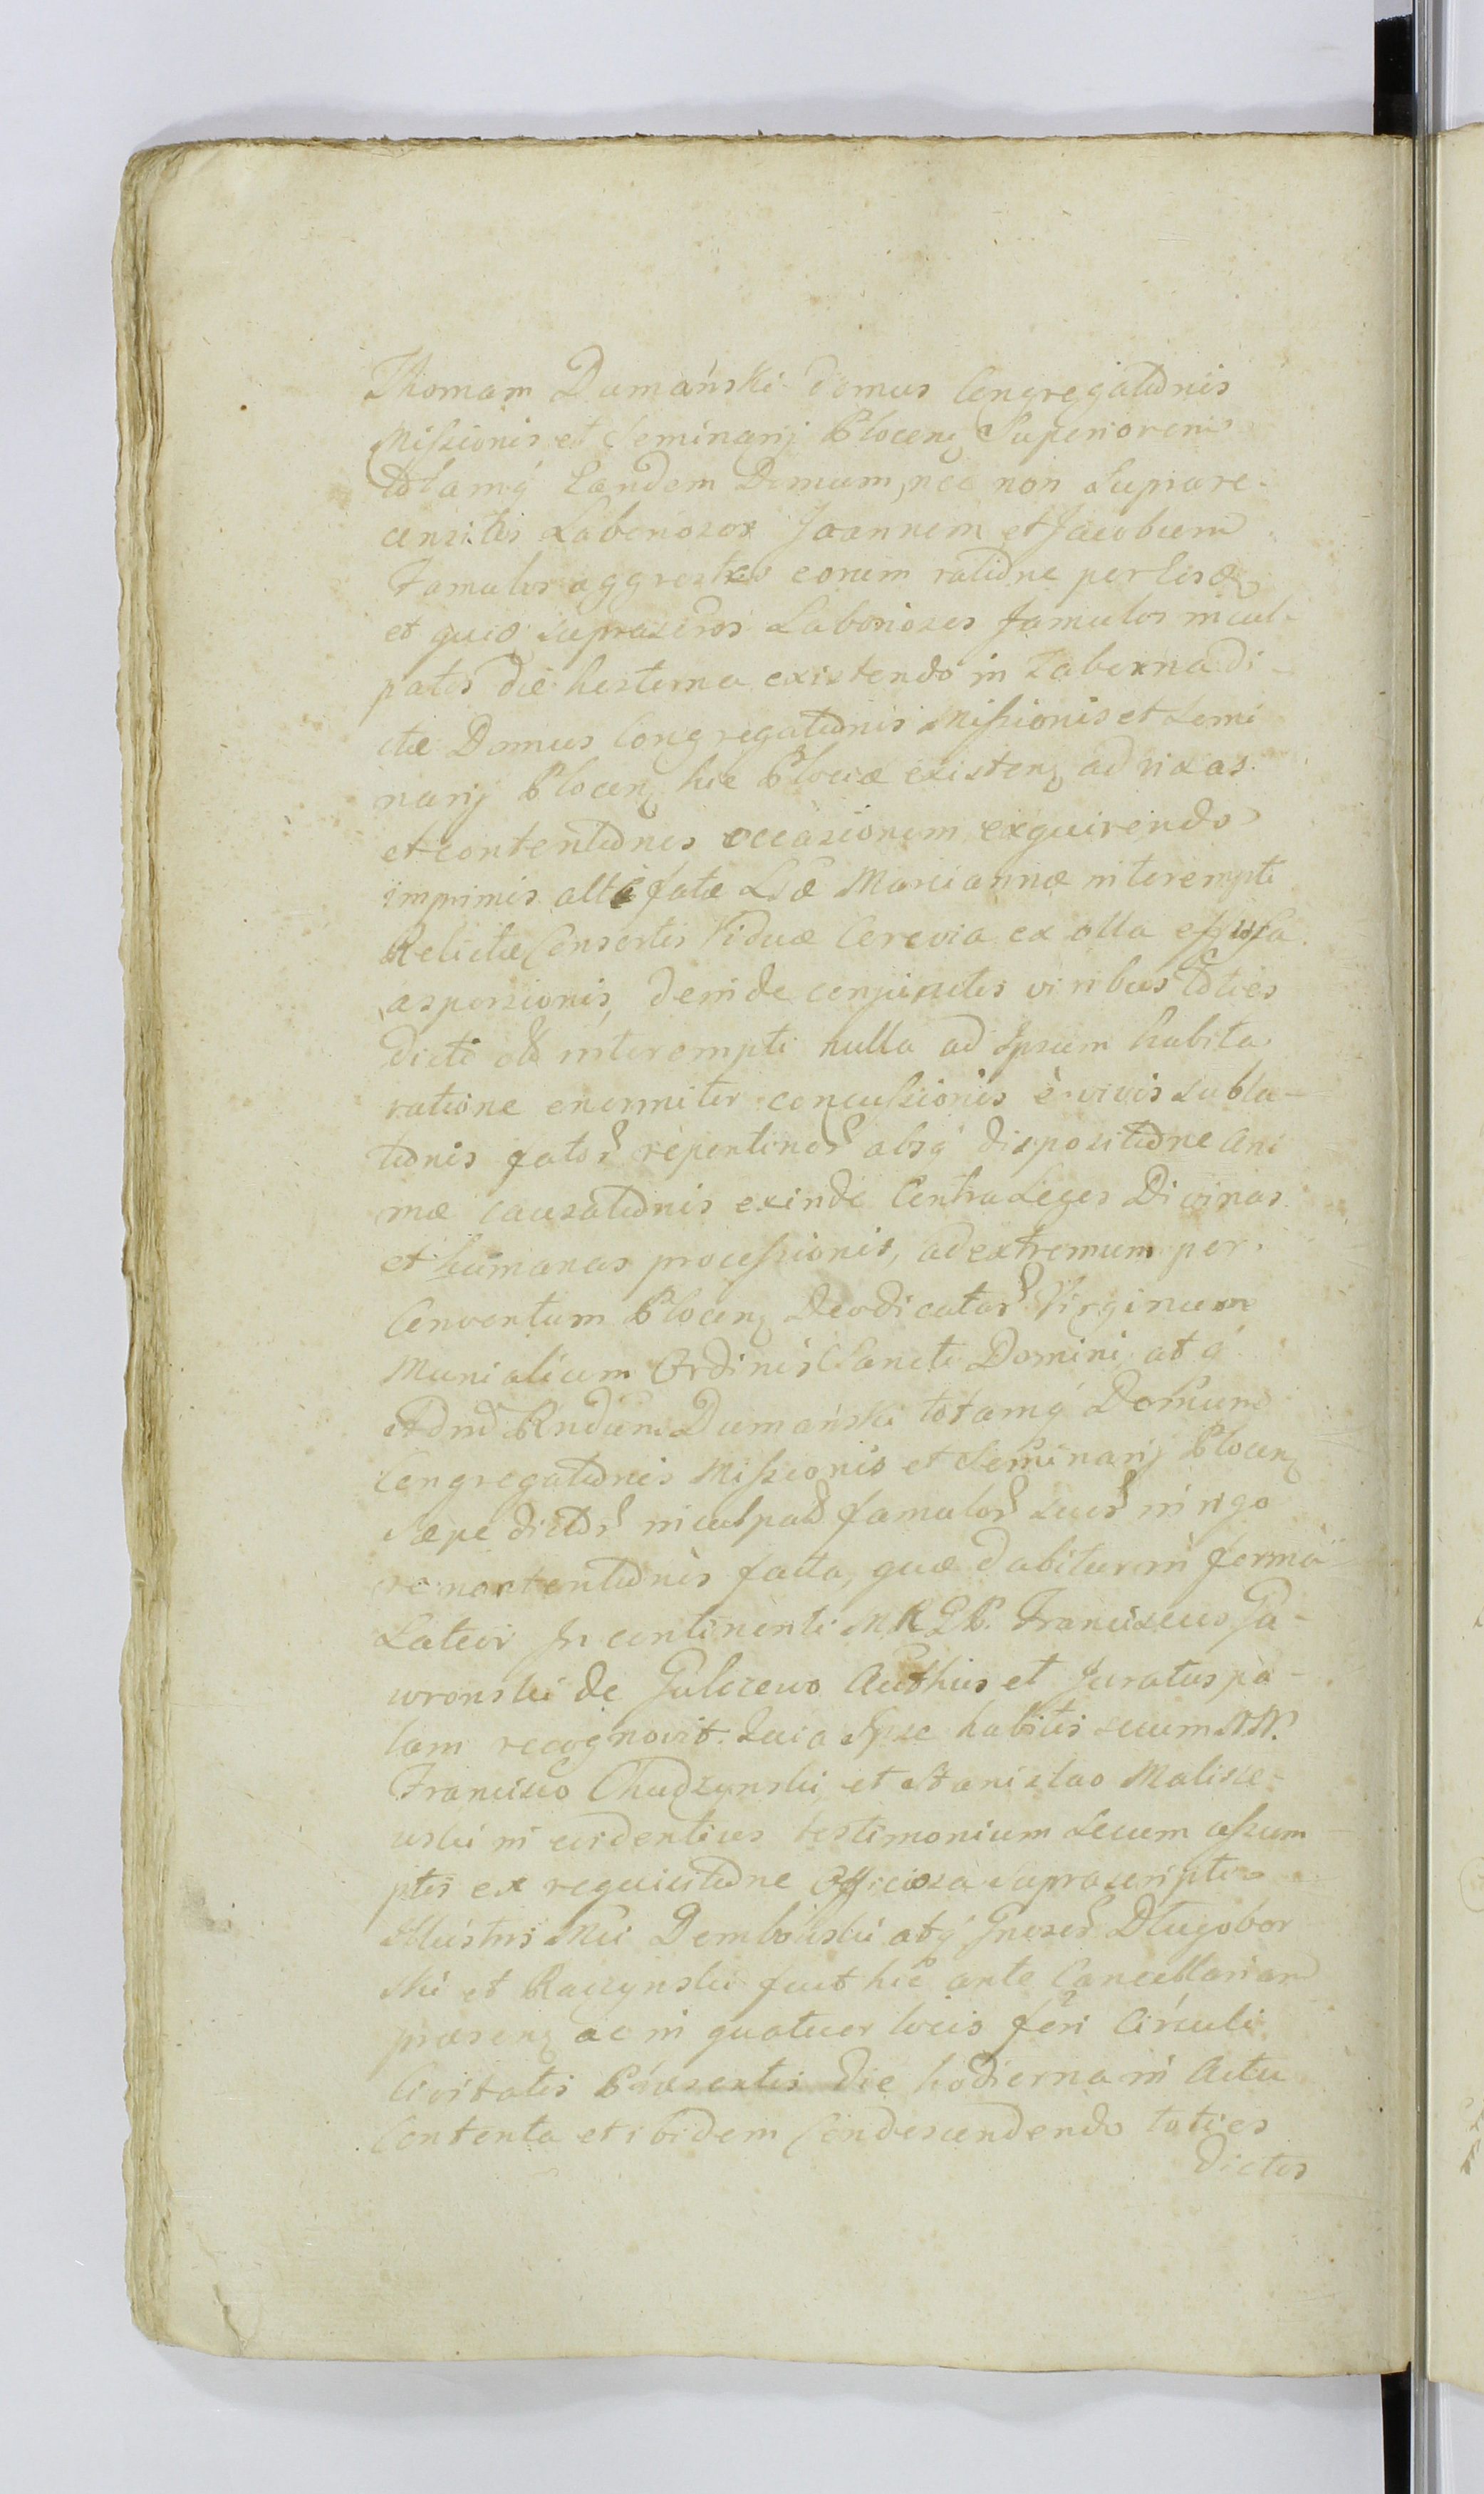 Thomam Dumański domus Congregatõnis
Missionis et Seminarij Plocenz Superiorem
totamq́ Eandem Domum, nec non Supra re-
censitos Laboriosos Joannem et Jacobum
Famulos aggrestes eorum ratiõne
et quia suprascros Laboriosos famulos incul-
patos die hesterna existendo in Taberna di-
ctæ Domus Congregatõnis Missionis et Semi
narij Plocenz hic Plociæ existenz ad rixas
et contentiõnes occasionem exquirendo
imprimis alte fatæ Mariannæ interempti
Relictæ Consortis Viduæ Cerevia ex olla effusa
aspersionis, deinde conjunctis viribus toties
dicti interempti nulla ad Ipsum habita
ratione enormiter concussionis è vivis subla-
tiõnis fator̃ repentinor̃ absq́ dispositiõne Ani
mæ causatiõnis exinde Contra Leges Divinas
et humanas processionis, ad extremum per
Conventum Plocenz Deodicatar̃ Virginum
Monialium Ordinis Sancti Domini atq́
Rndum Dumański totamq́ Domum
Congregatiõnis Missionis et Seminarij Plocenz
Sæpe dictor̃ inculpator̃ famulor̃ suor̃ in rigo
re non tentiõnis facta, quæ dabitur in forma
Latiori In continenti MRGP. Franciscus Ga-
wronski de Gulczewo Authus et Juratus pa-
lam recognovit. Quia Ipse habitis secum NN.
Francisco Chudzynski et Stanislao Malisze-
wski in evidentius testimonium secum assum
ptis ex requisitiõne Officiosa Suprascripti
Illustris Mci Dembowski atq́ Gnosor̃ Długobor
ski et Raczynski fuit hic ante Cancellariam
præsenz ac in quatuor locis fori Circuli
Civitatis Præsentis die hodierna in Actu
Contenta et ibidem Condescendendo toties
dictos